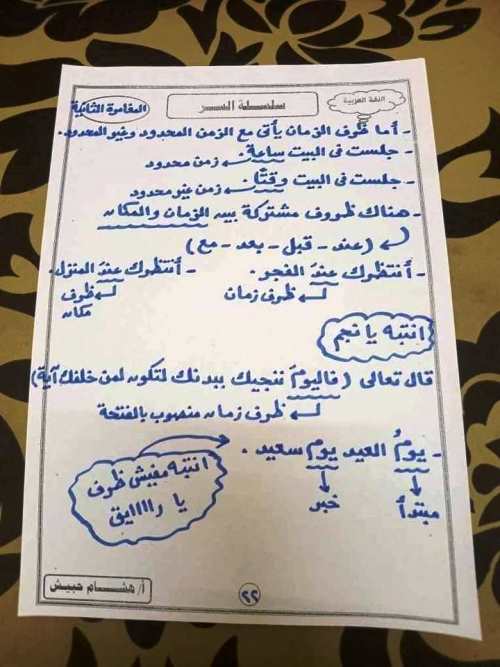 اللغة العربية
سلسلة السر
المغامرة الثانية
- أما ظرف الزمان يأتى مع الزمن المحدود وغير المحدود.
- جلست فى البيت ساعة. زمن محدود
- جلست فى البيت وقتًا. زمن غير محدود
- هناك ظروف مشتركة بين الزمان والمكان
(عند - قبل - بعد - مع)
- أنتظرك عند الفجر. - أنتظرك عند المنزل.
ظرف زمان ظرف
مكان
انتبه يا نجم
قال تعالى (فاليومَ ننجيك ببدنك لتكون لمن خلفك آية)
ظرف زمان منصوب بالفتحة
- يومُ العيد يومٌ سعيد.
مبتدأ خبر
انتبه مفيش ظرف
يا رااااايق
٢٢
أ/ هشام حبيش